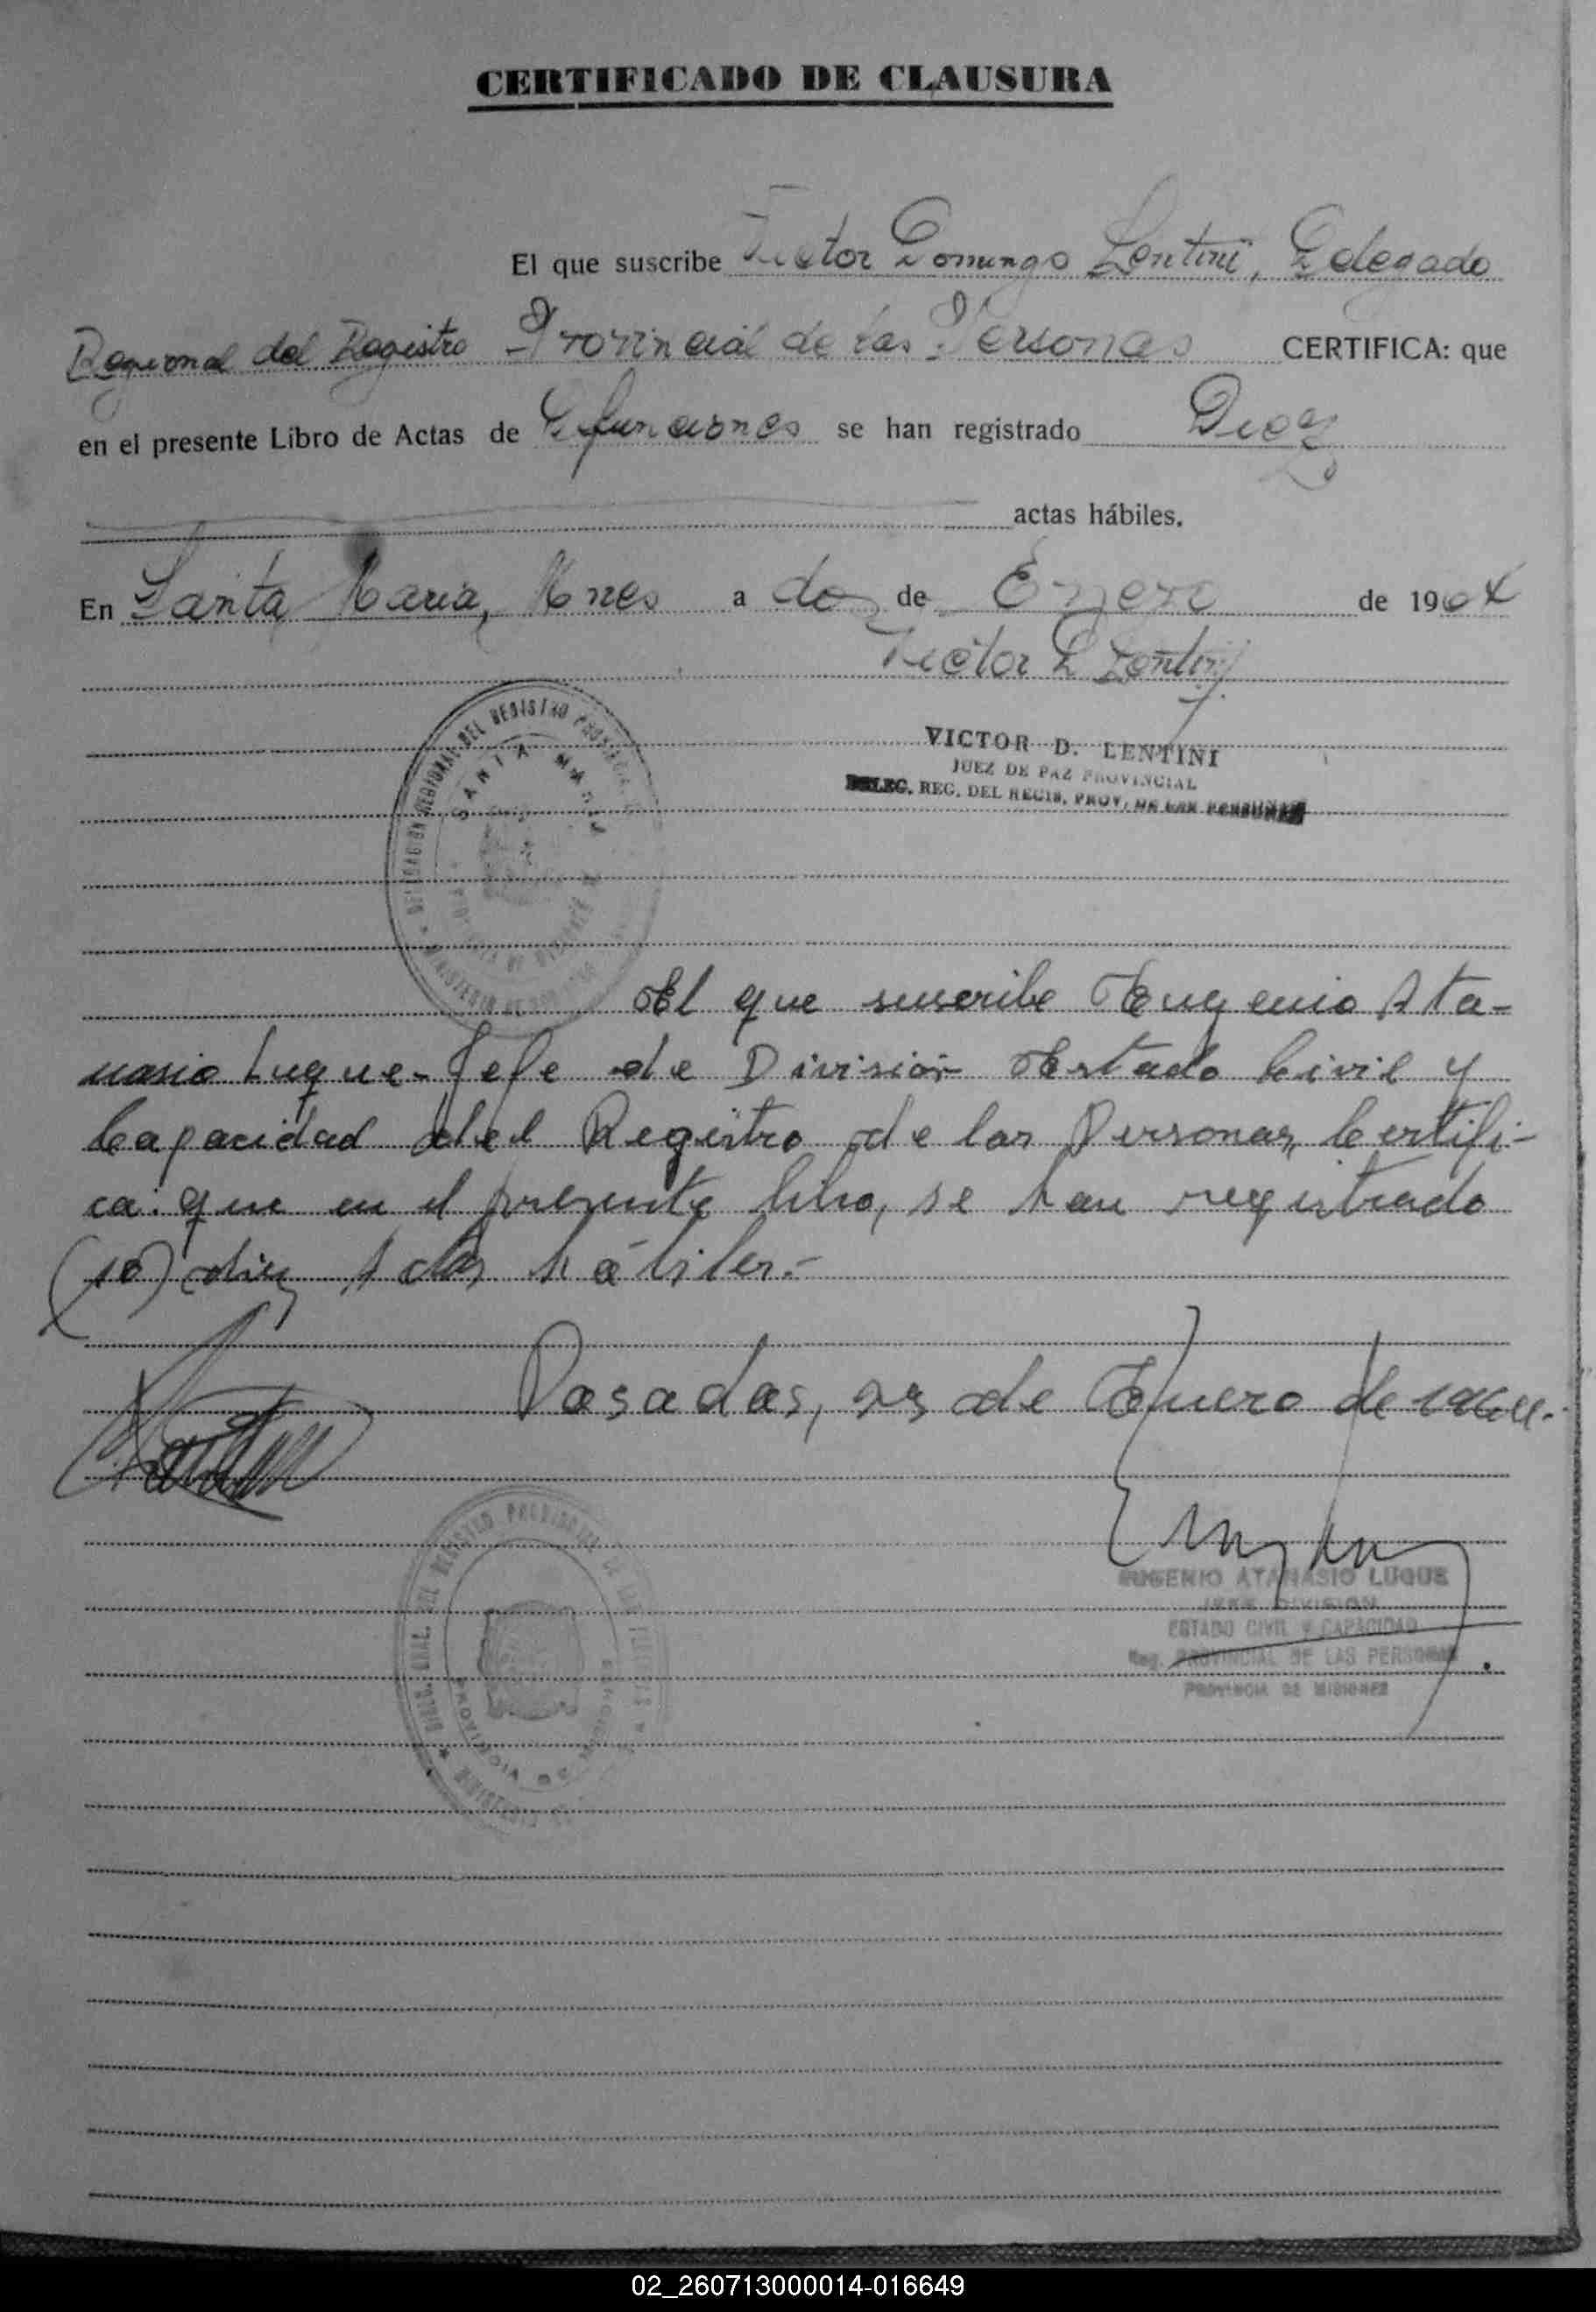 CERTIFICADO DE CLAUSURA
El que suscribe Victor Domingo Lentini, Delegado
Regional del Registro Provincial de las Personas CERTIFICA: que
en el presente Libro de Actas de Defunciones se han registrado Diez
actas hábiles.
En Santa Maria, Mnes a dos de Enero de 1964
Victor D Lentini
VICTOR D. LENTINI
JUEZ DE PAZ PROVINCIAL
DELEG. REG. DEL REGIS. PROV. DE LAS PERSONAS
DELEGACION REGIONAL DEL REGISTRO PROVINCIAL
SANTA MARIA
El que suscribe Eugenio Ata-
nasio Luque- Jefe de Division Estado Civil y
Capacidad del Registro de las Personas, Certifi-
ca: que en el presente libro, se han registrado
(10) diez Actas hábiles.-
Posadas, de Enero de 1964.-
EUGENIO ATANASIO LUQUE
JEFE DIVISION
ESTADO CIVIL Y CAPACIDAD
Reg. PROVINCIAL DE LAS PERSONAS
PROVINCIA DE MISIONES
DIREC. GRAL. DEL REGISTRO PROVINCIAL DE LAS
PROVINCIA DE
02_260713000014-016649